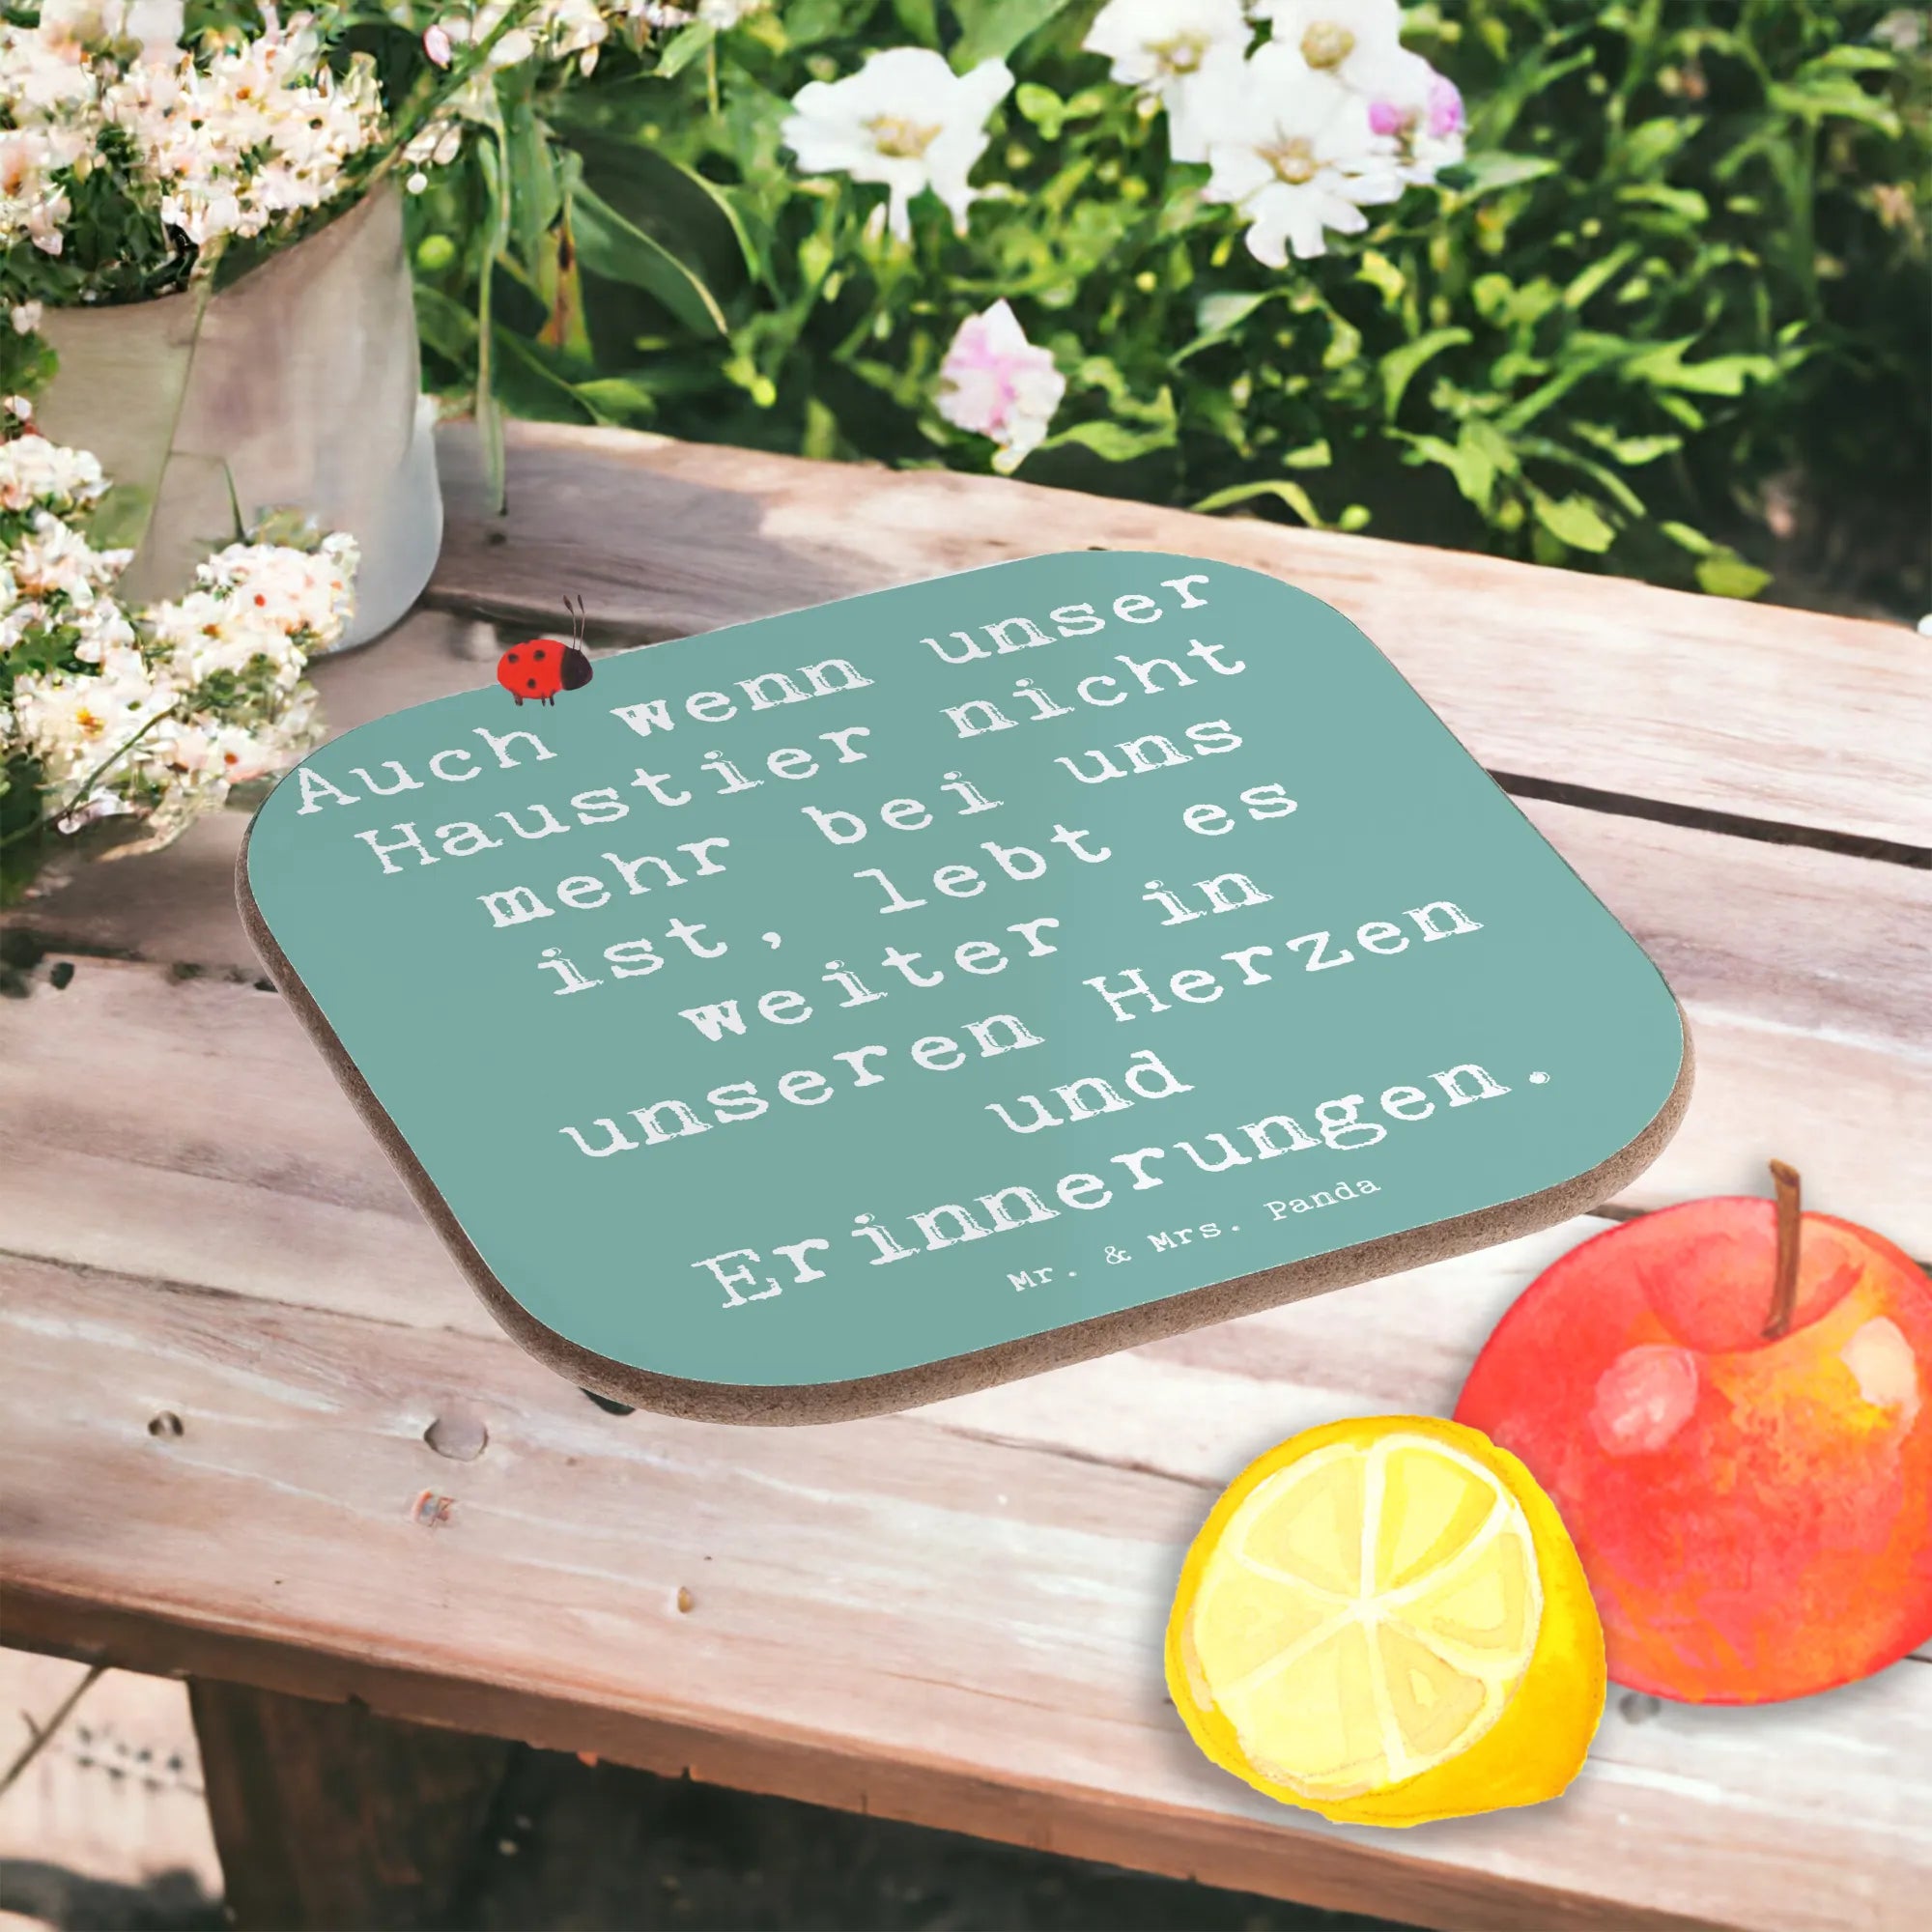 Auch wenn unser
Haustier nicht
mehr bei uns
ist, lebt es
weiter in
unseren Herzen
und
Erinnerungen.
Mr. & Mrs. Panda